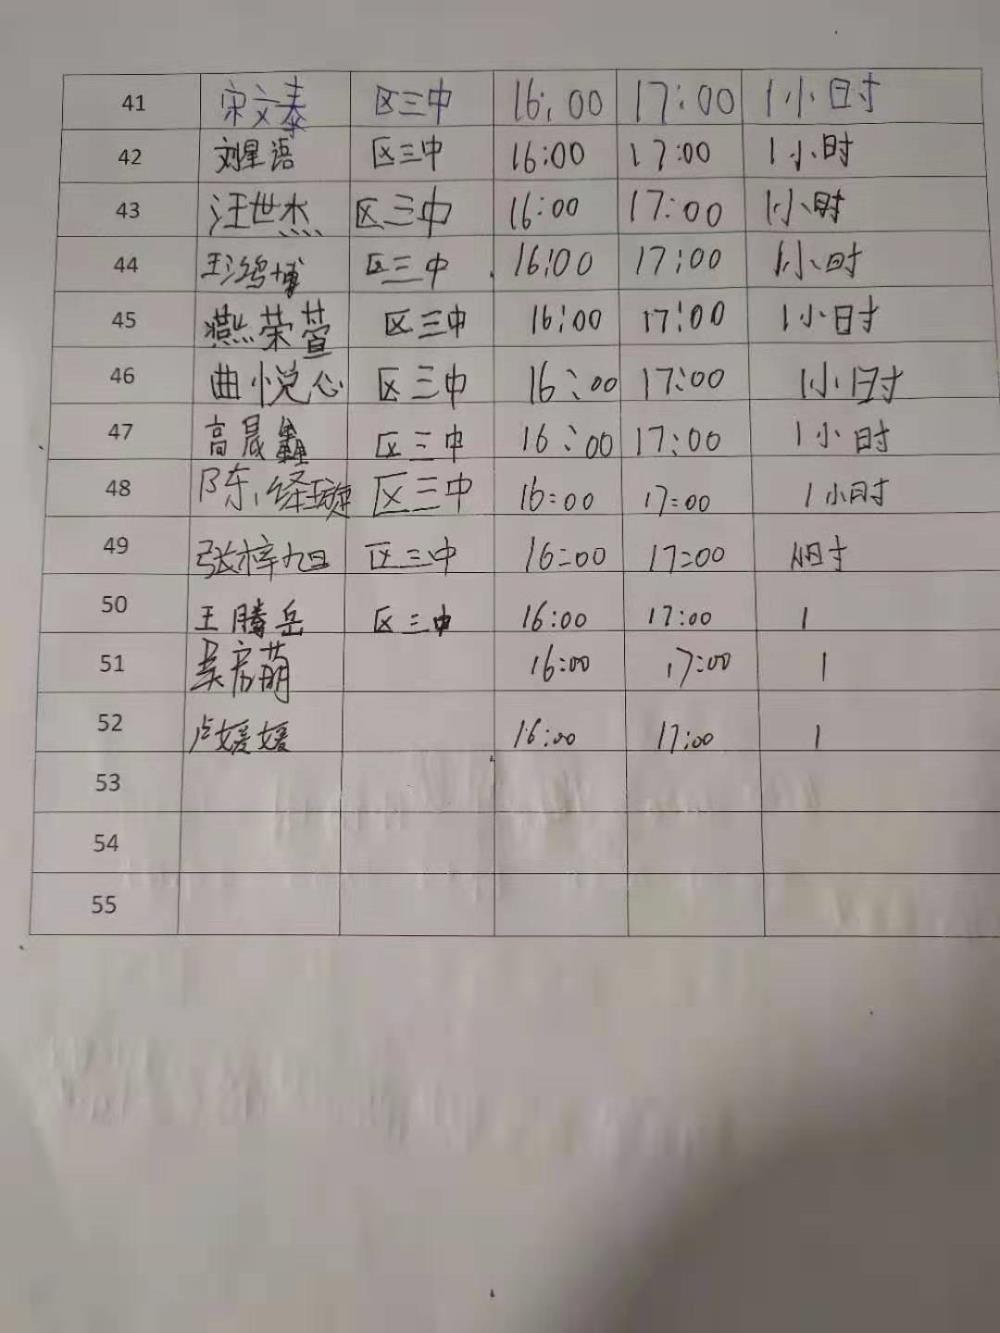 41 宋文泰 区三中 16:00 17:00 1小时
42 刘星语 区三中 16:00 17:00 1小时
43 汪世杰 区三中 16:00 17:00 1小时
44 王鸿博 区三中 16:00 17:00 1小时
45 燕荣萱 区三中 16:00 17:00 1小时
46 曲悦心 区三中 16:00 17:00 1小时
47 高晟鑫 区三中 16:00 17:00 1小时
48 陈绎璇 区三中 16:00 17:00 1小时
49 张梓旭 区三中 16:00 17:00 1小时
50 王腾岳 区三中 16:00 17:00 1
51 吴宛萌 16:00 17:00 1
52 卢媛媛 16:00 17:00 1
53
54
55